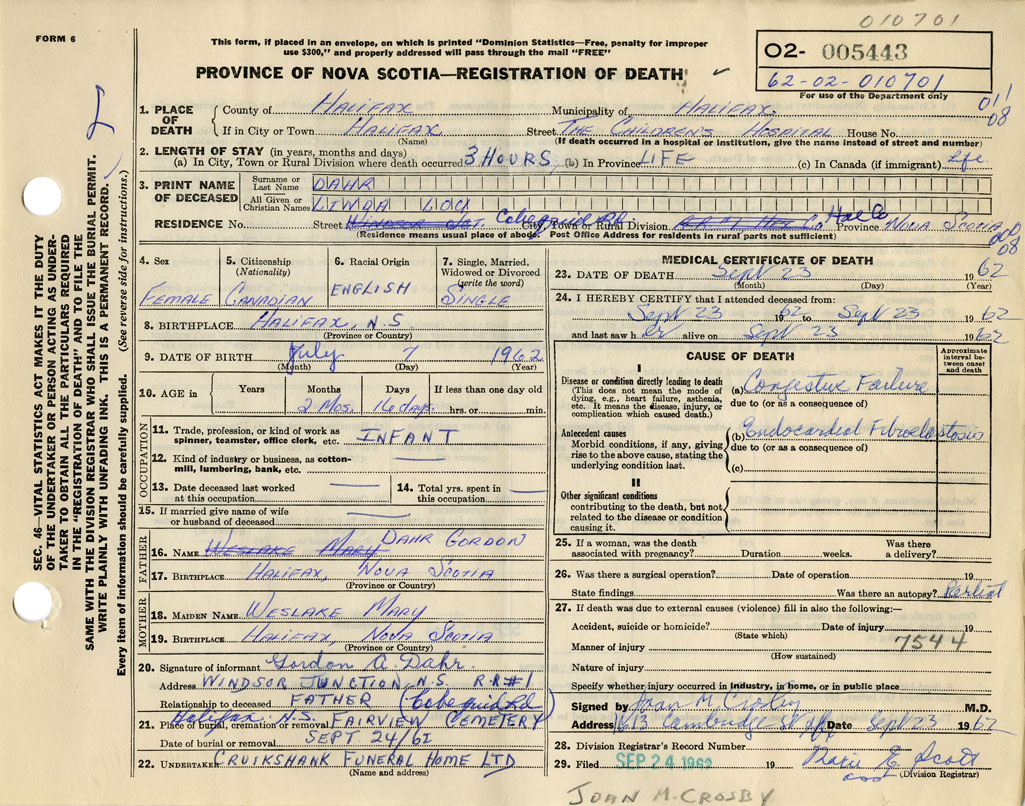 010701
FORM 6
This form, if placed in an envelope, on which is printed "Dominion Statistics—Free, penalty for improper
use $300," and properly addressed will pass through the mail "FREE"
PROVINCE OF NOVA SCOTIA—REGISTRATION OF DEATH
O2- 005443
62-02-010701
For use of the Department only
011
08
1. PLACE OF DEATH
County of HALIFAX Municipality of HALIFAX
If in City or Town HALIFAX Street THE CHILDREN'S HOSPITAL House No.
(Name) (If death occurred in a hospital or institution, give the name instead of street and number)
2. LENGTH OF STAY (in years, months and days)
(a) In City, Town or Rural Division where death occurred 3 HOURS (b) In Province LIFE (c) In Canada (if immigrant) Life.
3. PRINT NAME OF DECEASED
Surname or Last Name DAHR
All Given or Christian Names LINDA LOU
RESIDENCE No. Street WINDSOR JCT. Cobequid Rd. City, Town or Rural Division Hal Co Province NOVA SCOTIA
(Residence means usual place of abode. Post Office Address for residents in rural parts not sufficient)
000
08
SEC. 46—VITAL STATISTICS ACT MAKES IT THE DUTY
OF THE UNDERTAKER OR PERSON ACTING AS UNDER-
TAKER TO OBTAIN ALL THE PARTICULARS REQUIRED
IN THE "REGISTRATION OF DEATH" AND TO FILE THE
SAME WITH THE DIVISION REGISTRAR WHO SHALL ISSUE THE BURIAL PERMIT.
WRITE PLAINLY WITH UNFADING INK. THIS IS A PERMANENT RECORD.
Every item of information should be carefully supplied. (See reverse side for instructions.)
4. Sex
FEMALE
5. Citizenship
(Nationality)
CANADIAN
6. Racial Origin
ENGLISH
7. Single, Married,
Widowed or Divorced
(write the word)
SINGLE
8. BIRTHPLACE HALIFAX, N.S
(Province or Country)
9. DATE OF BIRTH July 7 1962
(Month) (Day) (Year)
10. AGE in Years Months Days If less than one day old
2 Mos. 16 days. hrs. or min.
OCCUPATION
11. Trade, profession, or kind of work as
spinner, teamster, office clerk, etc. INFANT
12. Kind of industry or business, as cotton-
mill, lumbering, bank, etc.
13. Date deceased last worked
at this occupation
14. Total yrs. spent in
this occupation
15. If married give name of wife
or husband of deceased
FATHER
16. NAME WESLAKE MARY DAHR GORDON
17. BIRTHPLACE HALIFAX, NOVA SCOTIA
(Province or Country)
MOTHER
18. MAIDEN NAME WESLAKE MARY
19. BIRTHPLACE HALIFAX, NOVA SCOTIA
(Province or Country)
20. Signature of informant Gordon A. Dahr.
Address WINDSOR JUNCTION, N.S. R.R#1
Relationship to deceased FATHER (Cobequid Rd)
21. Place of burial, cremation or removal Halifax N.S. FAIRVIEW CEMETERY
Date of burial or removal SEPT. 24/62
22. UNDERTAKER CRUIKSHANK FUNERAL HOME LTD
(Name and address)
MEDICAL CERTIFICATE OF DEATH
23. DATE OF DEATH Sept 23 1962
(Month) (Day) (Year)
24. I HEREBY CERTIFY that I attended deceased from:
Sept 23 1962 to Sept 23 1962
and last saw her alive on Sept 23 1962
CAUSE OF DEATH
Approximate
interval be-
tween onset
and death
I
Disease or condition directly leading to death
(This does not mean the mode of
dying, e.g., heart failure, asthenia,
etc. It means the disease, injury, or
complication which caused death.)
(a) Congestive Failure
due to (or as a consequence of)
Antecedent causes
Morbid conditions, if any, giving
rise to the above cause, stating the
underlying condition last.
(b) Endocardial Fibroelastosis
due to (or as a consequence of)
(c)
II
Other significant conditions
contributing to the death, but not
related to the disease or condition
causing it.
25. If a woman, was the death
associated with pregnancy? Duration weeks. Was there
a delivery?
26. Was there a surgical operation? Date of operation 19
State findings Was there an autopsy? Partial
27. If death was due to external causes (violence) fill in also the following:—
Accident, suicide or homicide? Date of injury 19
(State which)
Manner of injury 7544
(How sustained)
Nature of injury
Specify whether injury occurred in industry, in home, or in public place
Signed by Joan M. Crosby M.D.
Address 1613 Cambridge St Hfx Date Sept 23 1962
28. Division Registrar's Record Number
29. Filed SEP 24 1962 19 Scott
(Division Registrar)
JOAN M. CROSBY